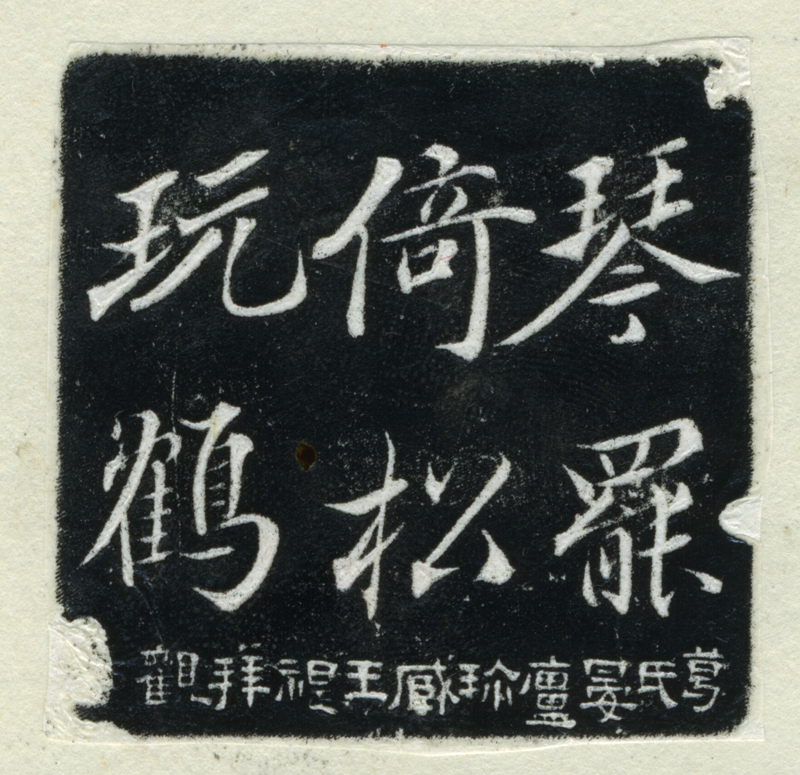 琴罷
倚松
玩鶴
葛氏晏廬珍臧王禔拜觀